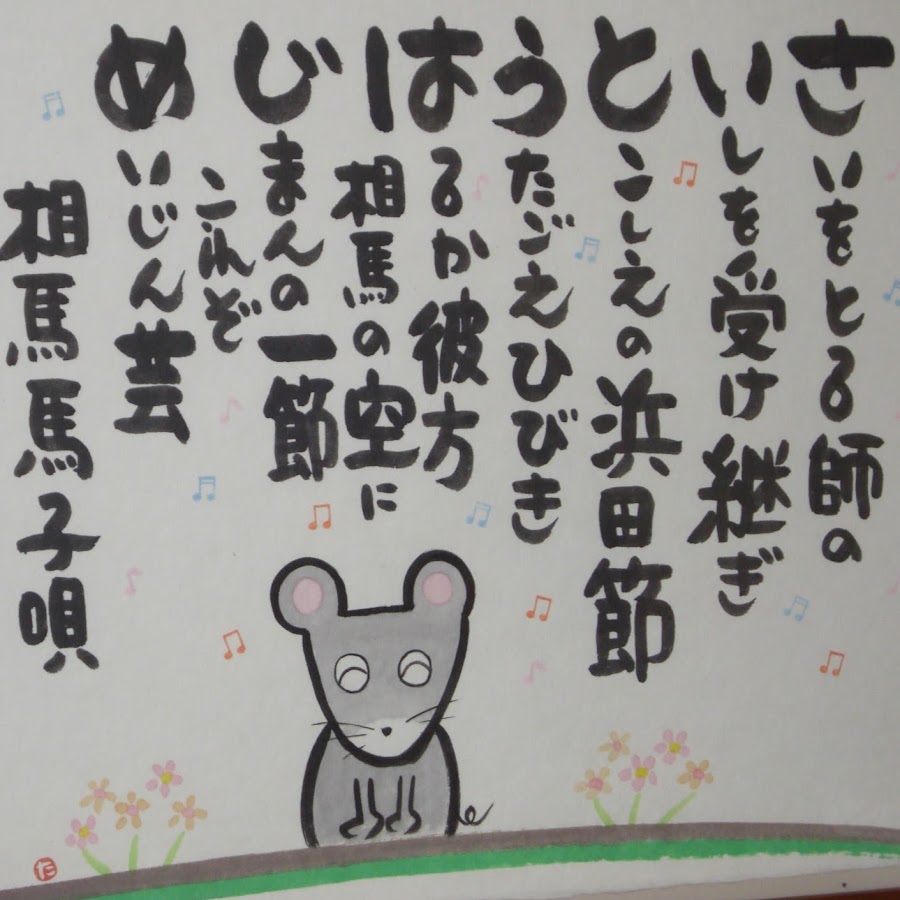 さいをとる師の
いしを受け継ぎ
とこしえの浜田節
うたごえひびき
はるか彼方
相馬の空に
じまんの一節
これぞ
めいじん芸
相馬馬子唄